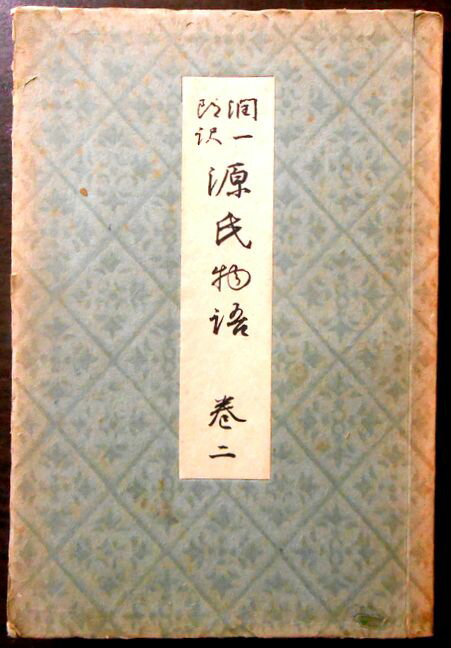 潤一
郎訳
源氏物語 巻二